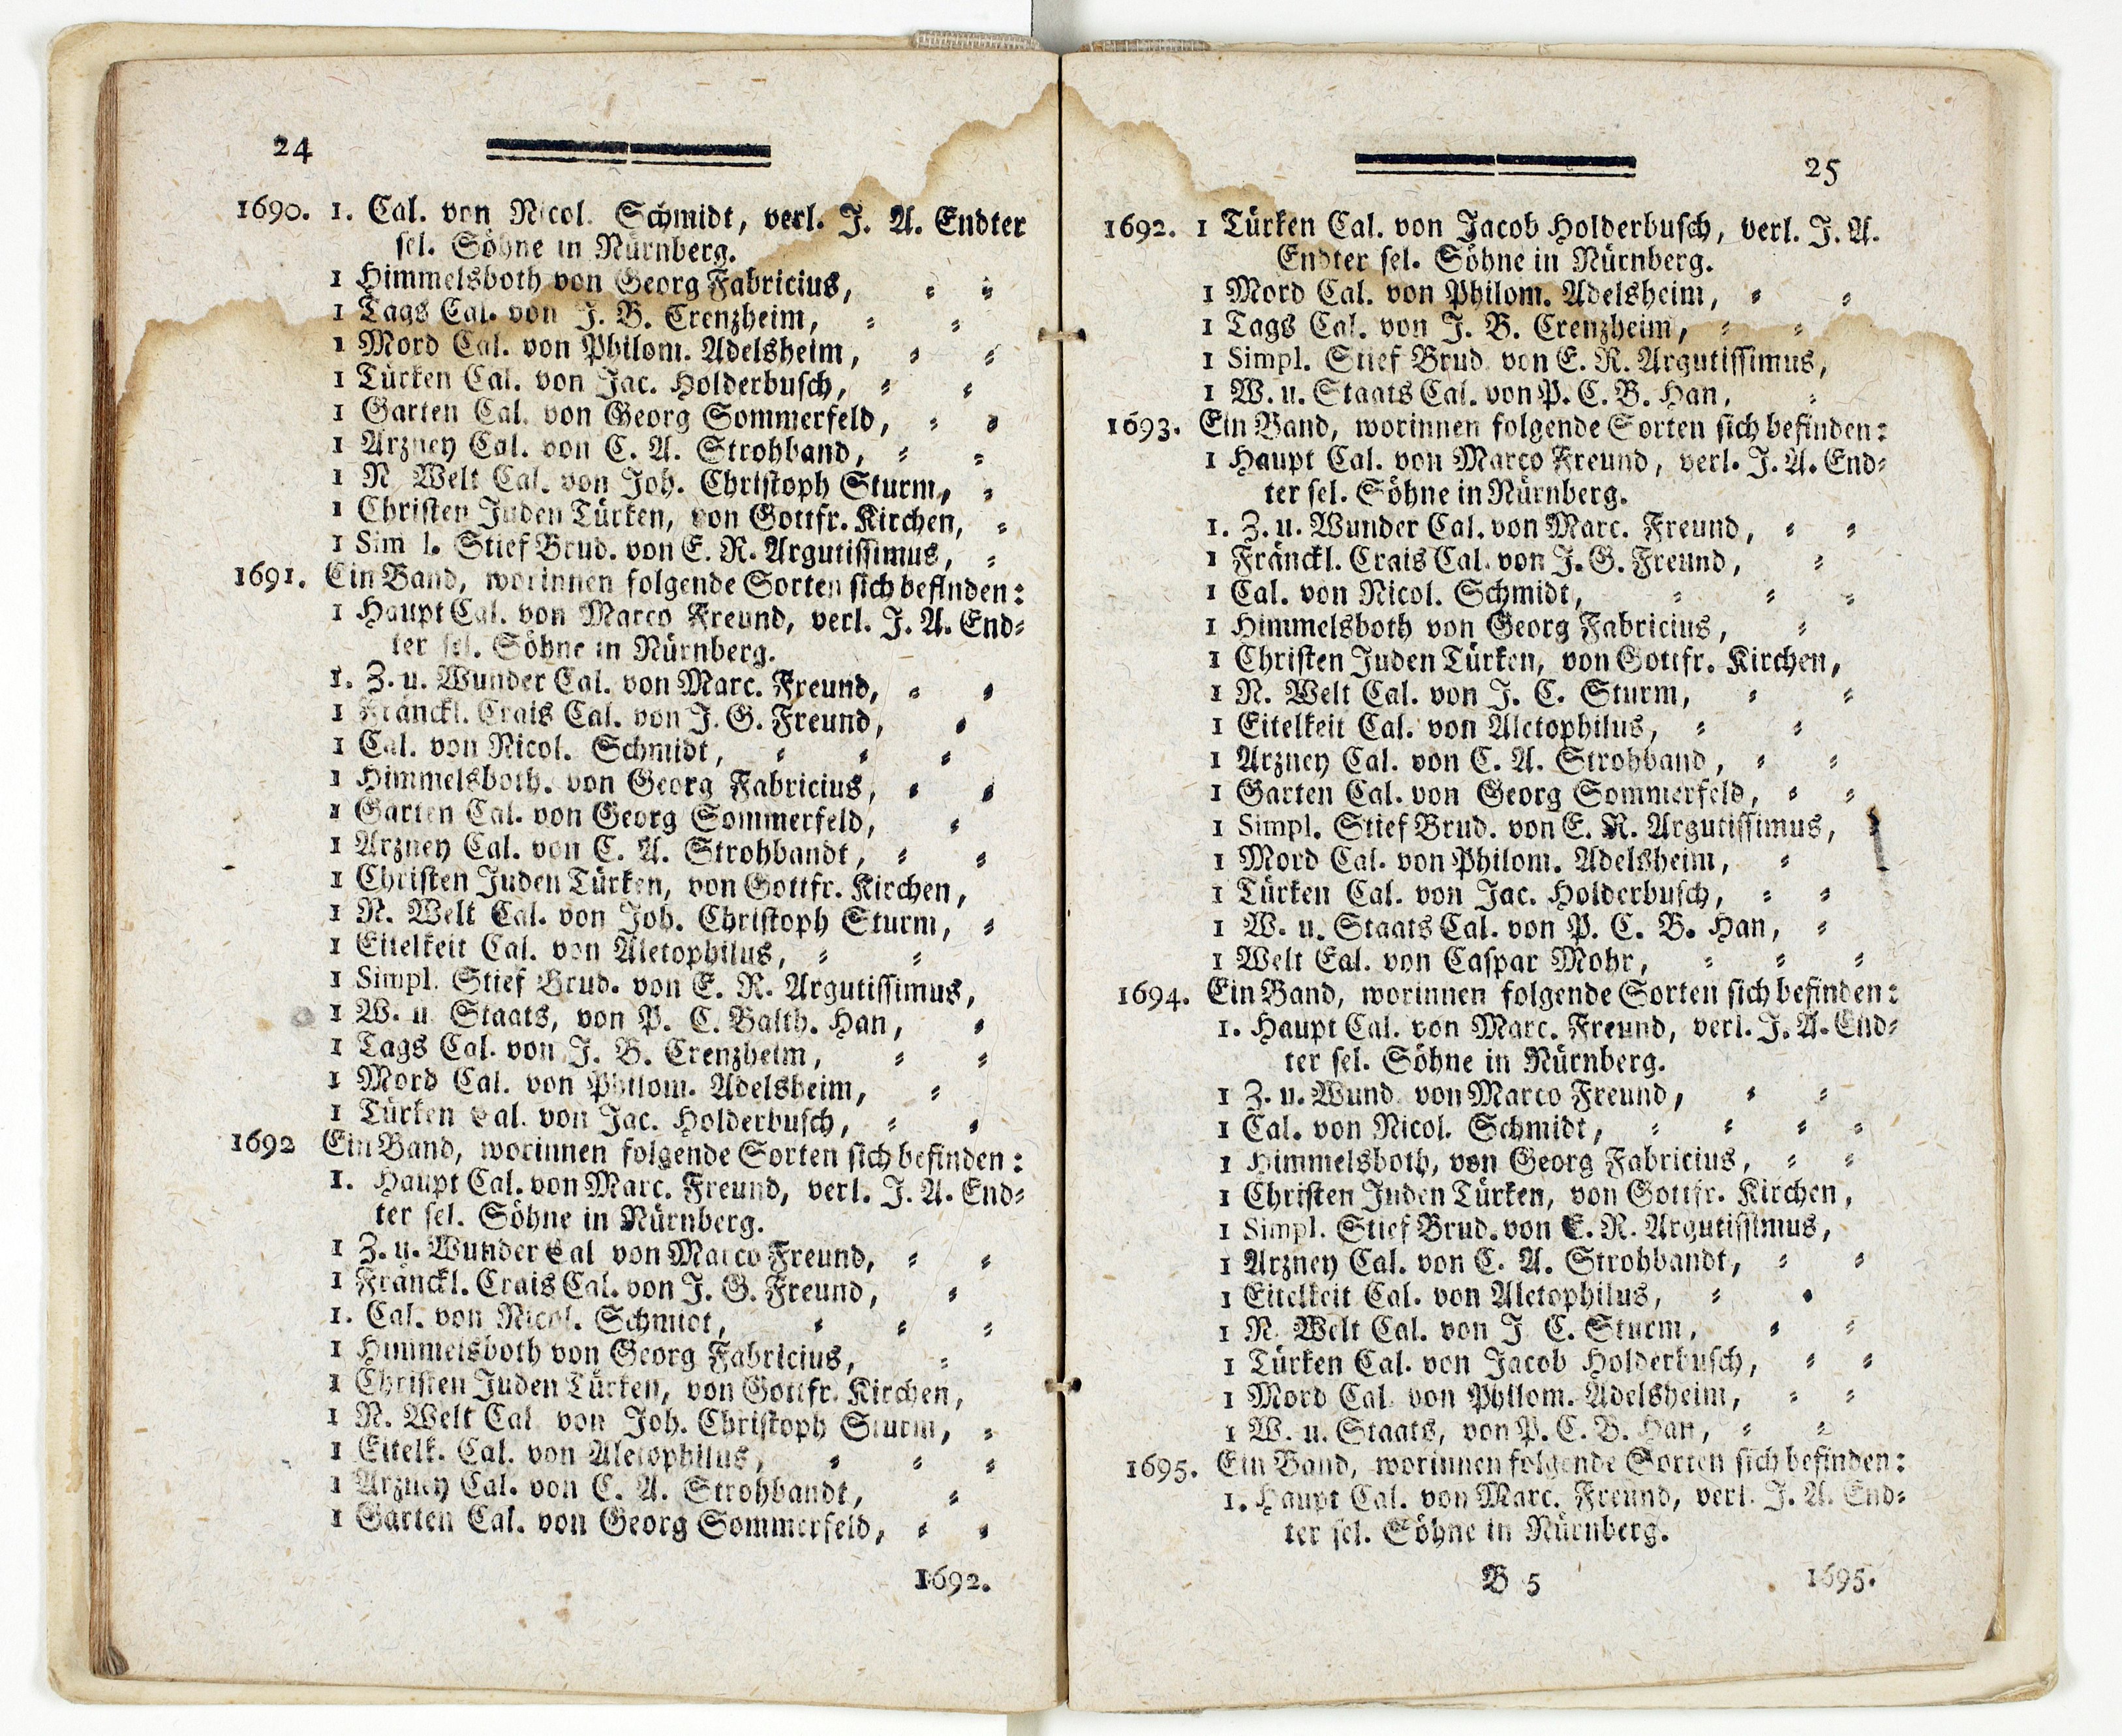 24
1690. 1. Cal. von Nicol. Schmidt, verl. J. A. Endter
sel. Söhne in Nürnberg.
1 Himmelsboth von Georg Fabricius, ⸗ ⸗
1 Tags Cal. von J. B. Crenzheim, ⸗ ⸗
1 Mord Cal. von Philom. Adelsheim, ⸗ ⸗
1 Türken Cal. von Jac. Holderbusch, ⸗ ⸗
1 Garten Cal. von Georg Sommerfeld, ⸗ ⸗
1 Arzney Cal. von C. A. Strohband, ⸗ ⸗
1 N Welt Cal. von Joh. Christoph Sturm, ⸗
1 Christen Juden Türken, von Gottfr. Kirchen, ⸗
1 Sim l. Stief Brud. von E. R. Argutissimus, ⸗
1691. Ein Band, worinnen folgende Sorten sich befinden:
1 Haupt Cal. von Marco Freund, verl. J. A. End⸗
ter sel. Söhne in Nürnberg.
1. Z. u. Wunder Cal. von Marc. Freund, ⸗ ⸗
1 Fränckl. Crais Cal. von J. G. Freund, ⸗
1 Cal. von Nicol. Schmidt, ⸗ ⸗ ⸗
1 Himmelsboth. von Georg Fabricius, ⸗ ⸗
1 Garten Cal. von Georg Sommerfeld, ⸗
1 Arzney Cal. von C. A. Strohbandt, ⸗ ⸗
1 Christen Juden Türken, von Gottfr. Kirchen,
1 N. Welt Cal. von Joh. Christoph Sturm, ⸗
1 Eitelkeit Cal. von Aletophilus, ⸗ ⸗
1 Simpl. Stief Brud. von E. R. Argutissimus,
1 W. u Staats, von P. C. Balth. Han, ⸗
1 Tags Cal. von J. B. Crenzheim, ⸗ ⸗
1 Mord Cal. von Philom. Adelsheim, ⸗
1 Türken Cal. von Jac. Holderbusch, ⸗ ⸗
1692 Ein Band, worinnen folgende Sorten sich befinden:
1. Haupt Cal. von Marc. Freund, verl. J. A. End⸗
ter sel. Söhne in Nürnberg.
1 Z. u. Wunder Cal von Marco Freund, ⸗ ⸗
1 Fränckl. Crais Cal. von J. G. Freund, ⸗
1. Cal. von Nicol. Schmidt, ⸗ ⸗ ⸗
1 Himmelsboth von Georg Fabricius, ⸗
1 Christen Juden Türken, von Gottfr. Kirchen,
1 N. Welt Cal von Joh. Christoph Sturm, ⸗
1 Eitelk. Cal. von Aletophilus, ⸗ ⸗ ⸗
1 Arzney Cal. von C. A. Strohbandt, ⸗
1 Garten Cal. von Georg Sommerfeld, ⸗ ⸗
1692.
25
1692. 1 Türken Cal. von Jacob Holderbusch, verl. J. A.
Endter sel. Söhne in Nürnberg.
1 Mord Cal. von Philom. Adelsheim, ⸗ ⸗
1 Tags Cal. von J. B. Crenzheim, ⸗ ⸗
1 Simpl. Stief Brud von E. R. Argutissimus,
1 W. u. Staats Cal. von P. C. B. Han, ⸗
1693. Ein Band, worinnen folgende Sorten sich befinden:
1 Haupt Cal. von Marco Freund, verl. J. A. End⸗
ter sel. Söhne in Nürnberg.
1. Z. u. Wunder Cal. von Marc. Freund, ⸗ ⸗
1 Fränckl. Crais Cal. von J. G. Freund, ⸗
1 Cal. von Nicol. Schmidt, ⸗ ⸗ ⸗
1 Himmelsboth von Georg Fabricius, ⸗
1 Christen Juden Türken, von Gottfr. Kirchen,
1 N. Welt Cal. von J. C. Sturm, ⸗ ⸗
1 Eitelkeit Cal. von Aletophilus, ⸗ ⸗
1 Arzney Cal. von C. A. Strohband, ⸗ ⸗
1 Garten Cal. von Georg Sommerfeld, ⸗ ⸗
1 Simpl. Stief Brud. von E. R. Argutissimus, ⸗
1 Mord Cal. von Philom. Adelsheim, ⸗
1 Türken Cal. von Jac. Holderbusch, ⸗ ⸗
1 W. u. Staats Cal. von P. C. B. Han, ⸗
1 Welt Eal. von Caspar Mohr, ⸗ ⸗ ⸗
1694. Ein Band, worinnen folgende Sorten sich befinden:
1. Haupt Cal. von Marc. Freund, verl. J. A. End⸗
ter sel. Söhne in Nürnberg.
1 Z. u. Wund von Marco Freund, ⸗ ⸗
1 Cal. von Nicol. Schmidt, ⸗ ⸗ ⸗ ⸗
1 Himmelsboth, von Georg Fabricius, ⸗ ⸗
1 Christen Juden Türken, von Gottfr. Kirchen,
1 Simpl. Stief Brud. von E. R. Argutissimus,
1 Arzney Cal. von C. A. Strohbandt, ⸗ ⸗
1 Eitelkeit Cal. von Aletophilus, ⸗ ⸗
1 N. Welt Cal. von J C. Sturm, ⸗ ⸗
1 Türken Cal. von Jacob Holderbusch, ⸗ ⸗
1 Mord Cal. von Philom. Adelsheim, ⸗ ⸗
1 W. u. Staats, von P. C. B. Han, ⸗ ⸗
1695. Ein Band, worinnen folgende Sorten sich befinden:
1. Haupt Cal. von Marc. Freund, verl. J. A. End⸗
ter sel. Söhne in Nürnberg.
B 5 1695.